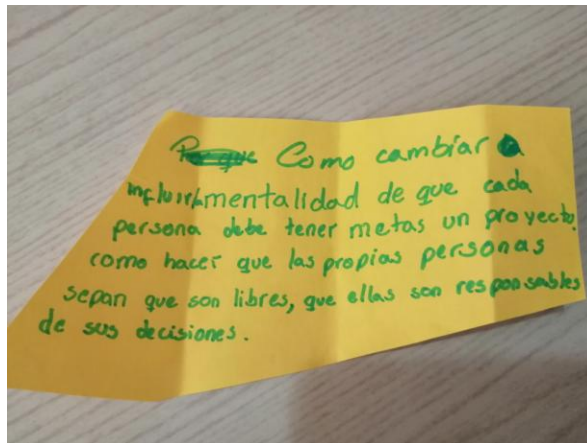 Como cambiar
influir mentalidad de que cada
persona debe tener metas un proyecto.
como hacer que las propias personas
sepan que son libres, que ellas son responsables
de sus decisiones.